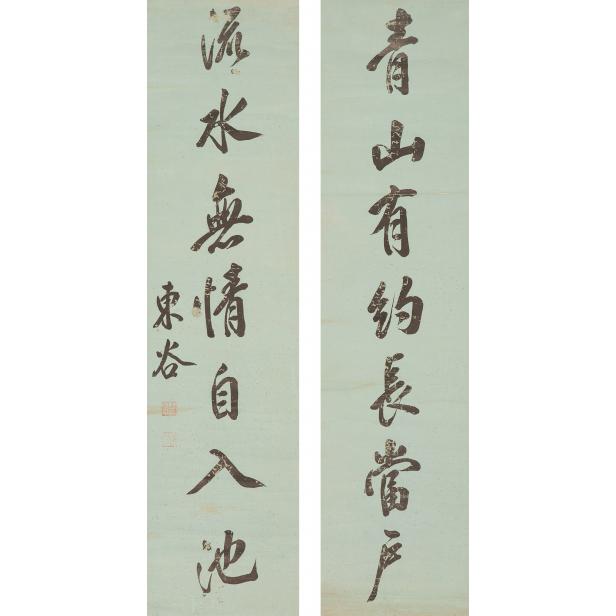 青山有約長當戶
流水無情自入池
東谷